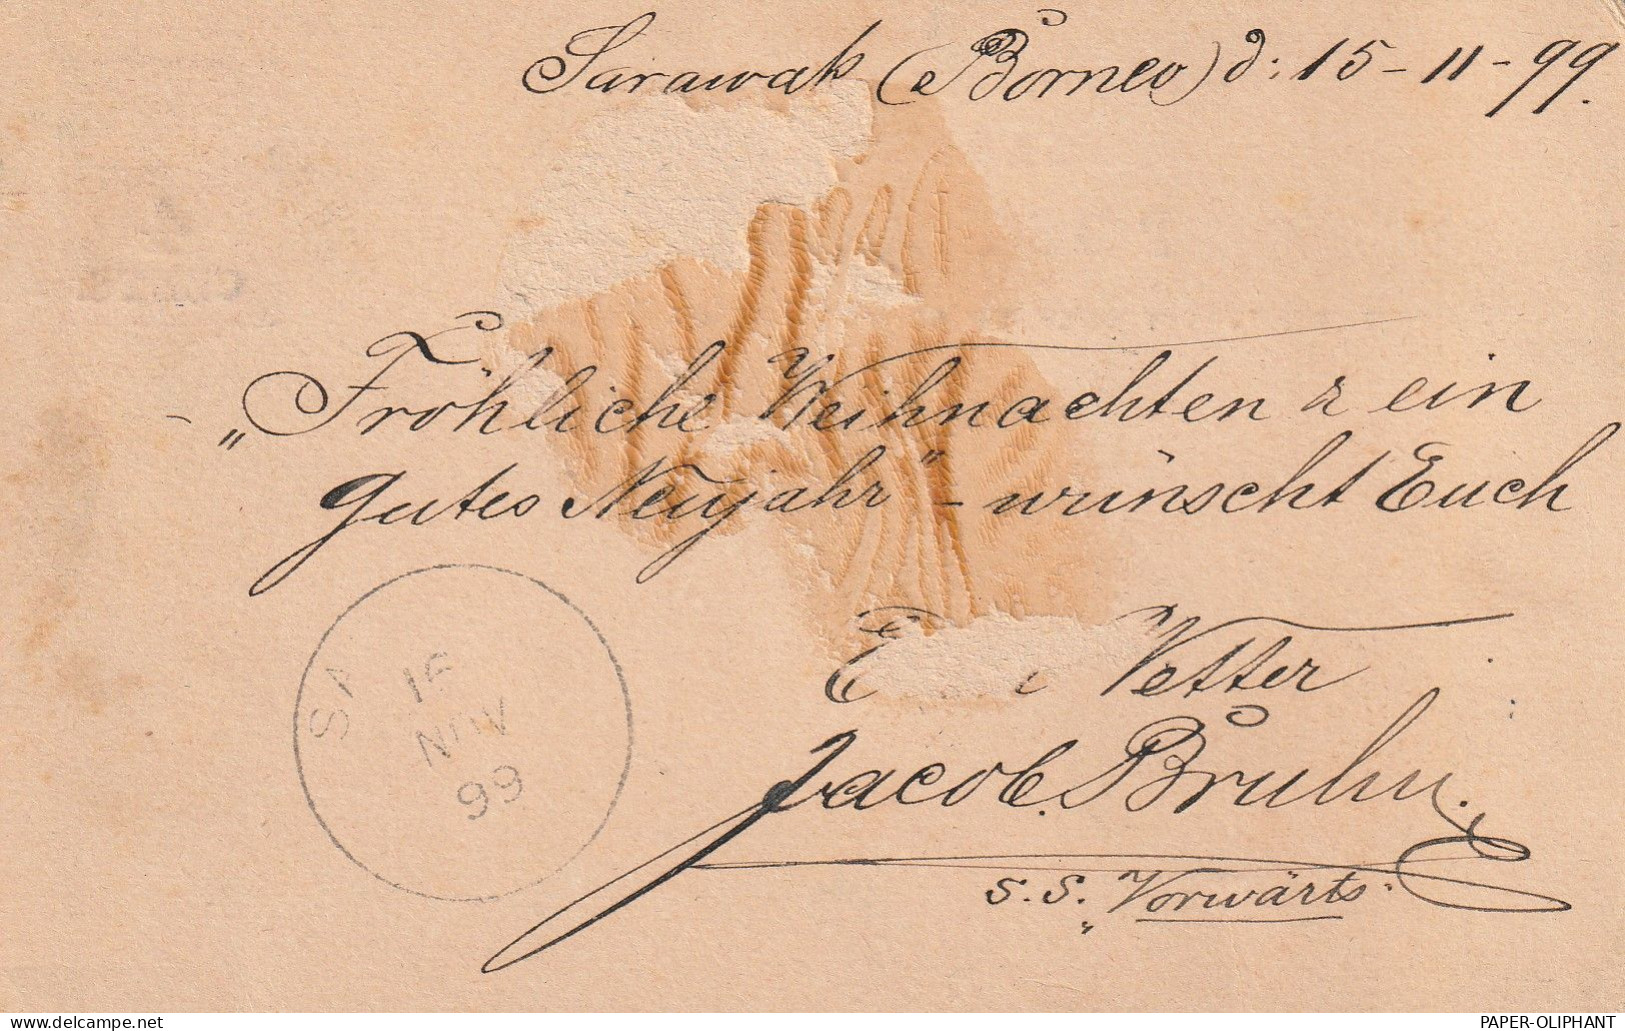 Sarawak (Borneo) d: 15-11-99.
- „Fröhliche Weihnachten & ein
gutes Neujahr" - wünscht Euch
Vetter
Jacob. Bruhn.
S.S. „Vorwärts"
SA
15
NOV
99
PAPER-OLIPHANT